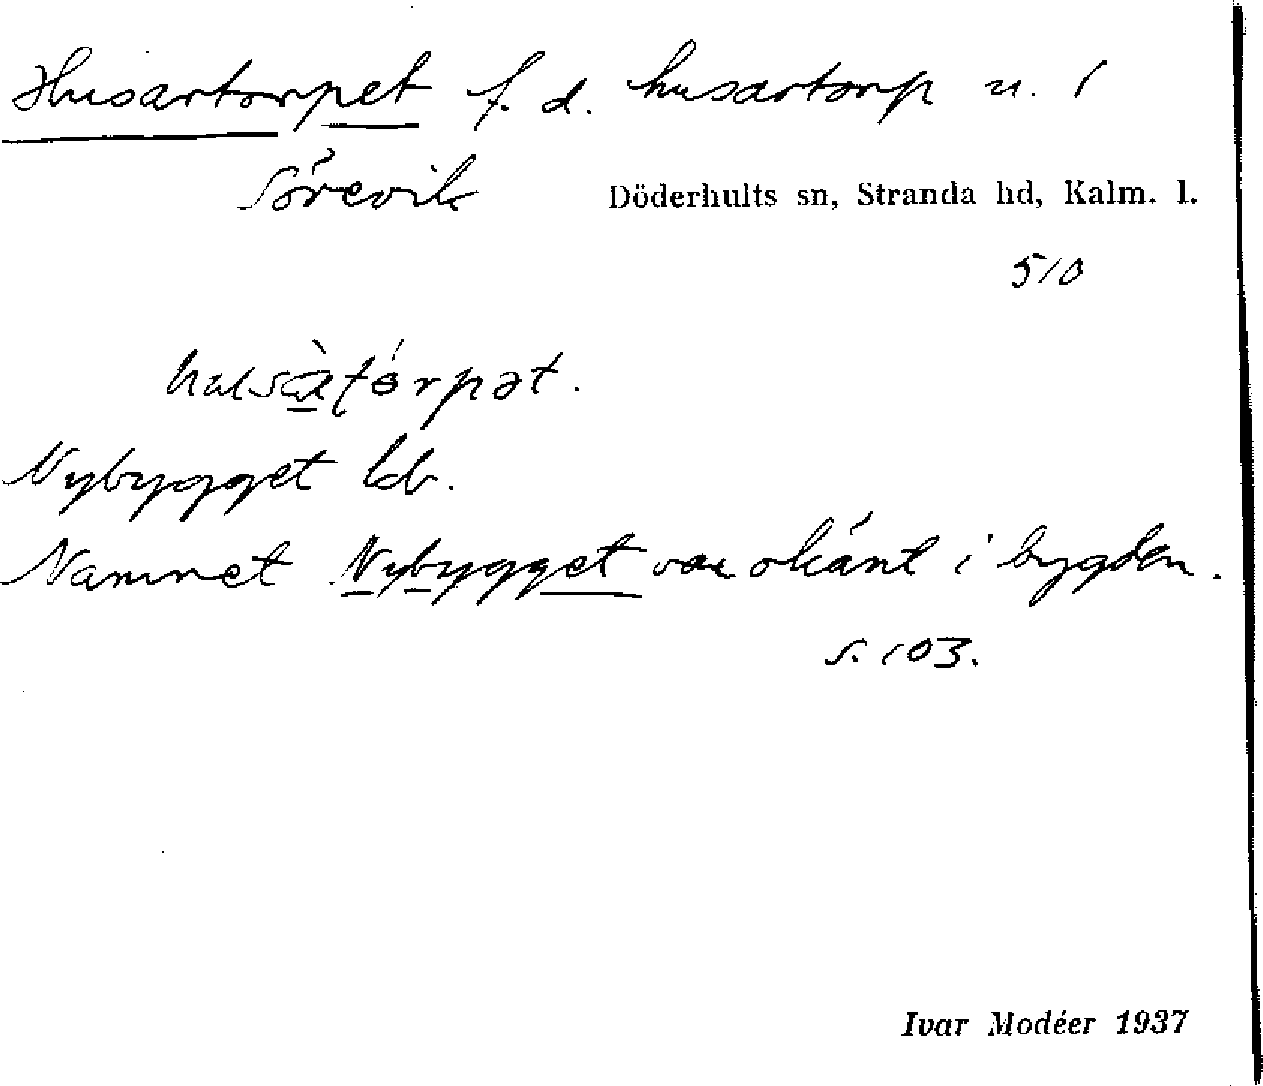 Husartorpet f. d. husartorp u. 1
Sörevik Döderhults sn, Stranda hd, Kalm. l.
510
Nybygget ldb.
Namnet Nybygget var okänt i bygden.
s. 103.
Ivar Modéer 1937